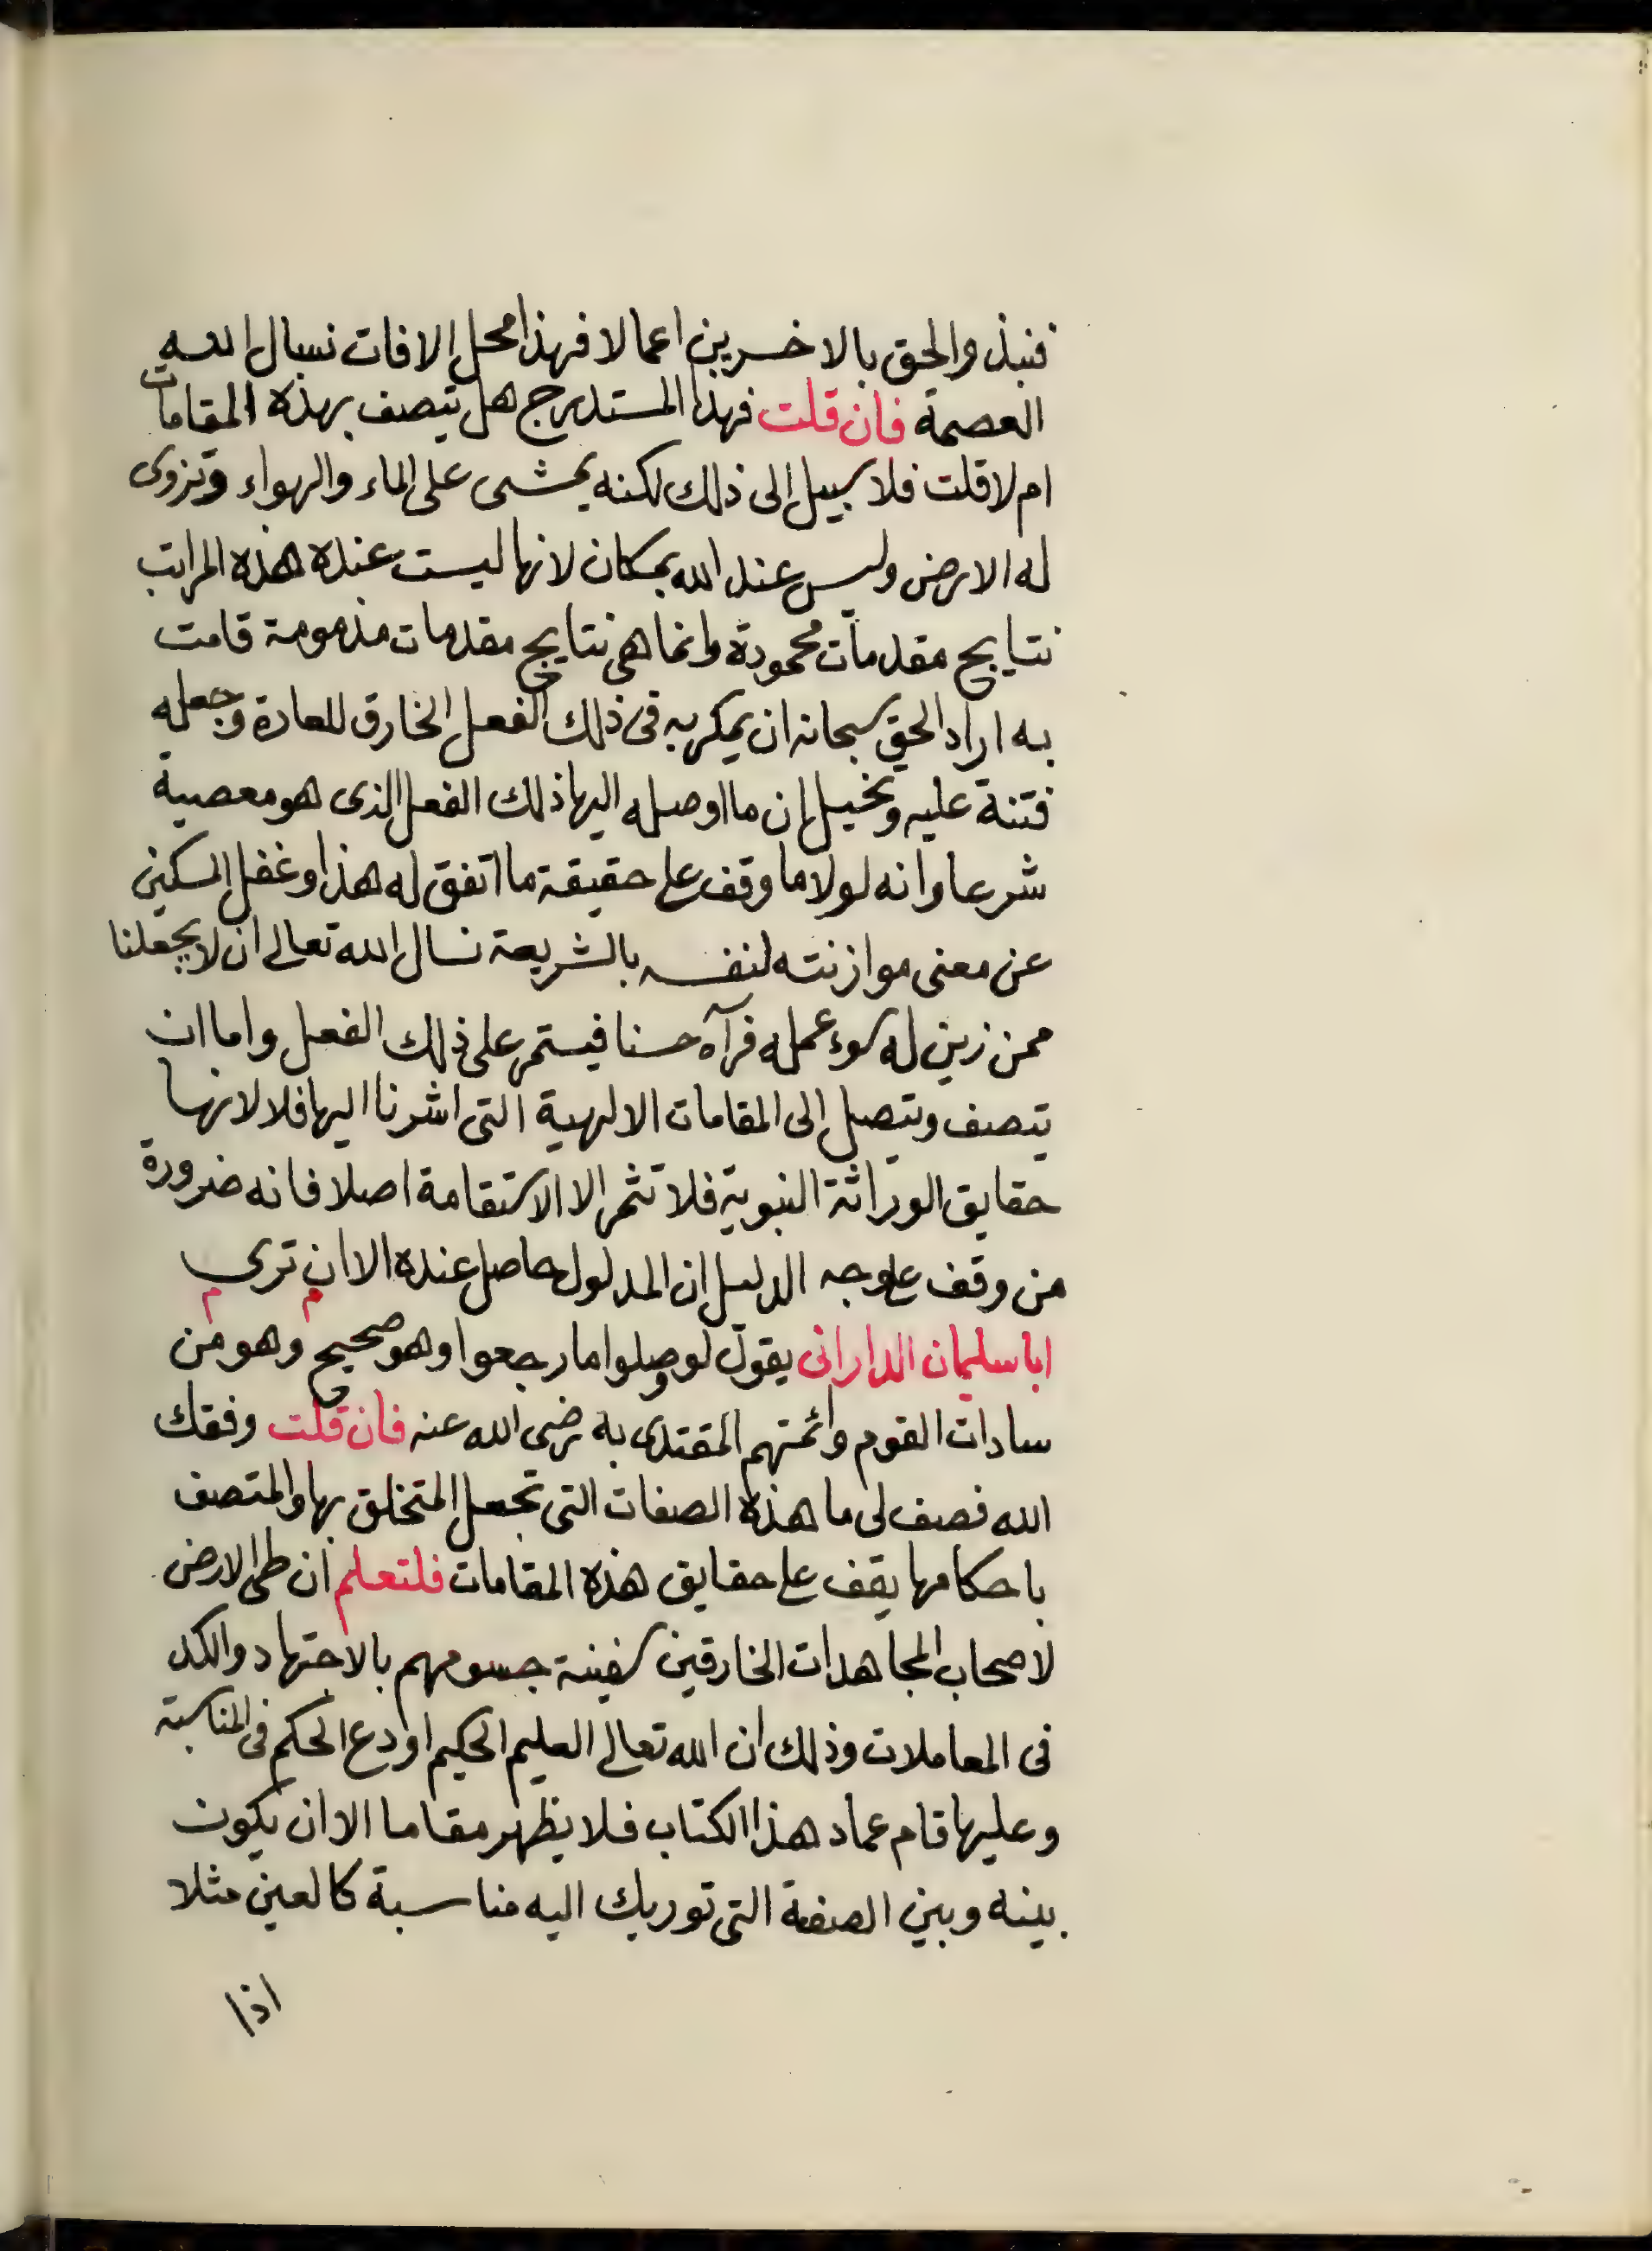 فنبذ والحق بالاخسرين اعمالا فهذا محل الافات نسال الله
العصمة فان قلت فهذا المستدرج هل يتصف بهذه المقامات
ام لا قلت فلا سبيل الى ذلك لكنه يمشى على الماء والهواء وتزوى
له الارض وليس عند الله بمكان لانها ليست عنده هذه المراتب
نتايج مقدمات محمودة وانما هى نتايج مقدمات مذمومة قامت
به اراد الحق سبحانه ان يمكر به فى ذلك الفعل الخارق للعادة وجعله
فتنة عليه وتخيل ان ما اوصله اليها ذلك الفعل الذى هو معصية
شرعا وانه لولا ما وقف على حقيقة ما اتفق له هذا وغفل المسكين
عن معنى موازنته لنفسه بالشريعة نسال الله تعالى ان لا يجعلنا
ممن زين له سوء عمله فرآه حسنا فيستمر على ذلك الفعل واما ان
يتصف ويتصل الى المقامات الالهية التى اشرنا اليها فلا لانها
حقايق الوراثة النبوية فلا تثمر الا الاستقامة اصلا فانه ضرورة
من وقف على وجه الدليل ان المدلول حاصل عنده الا ان ترى
ابا سليمان الدارانى يقول لو وصلوا ما رجعوا وهو صحيح وهو من
سادات القوم وائمتهم المقتدى به رضى الله عنه فان قلت وفقك
الله فصف لى ما هذه الصفات التى تجعل المتخلق بها والمتصف
باحكامها يقف على حقايق هذه المقامات فلتعلم ان طى الارض
لاصحاب المجاهدات الخارقين سفينة جسومهم بالاجتهاد والكد
فى المعاملات وذلك ان الله تعالى العليم الحكيم اودع الحكم فى المناسبة
وعليها قام عماد هذا الكتاب فلا يظهر مقاما الا ان يكون
بينه وبين الصفة التى توريك اليه مناسبة كالعين مثلا
اذا